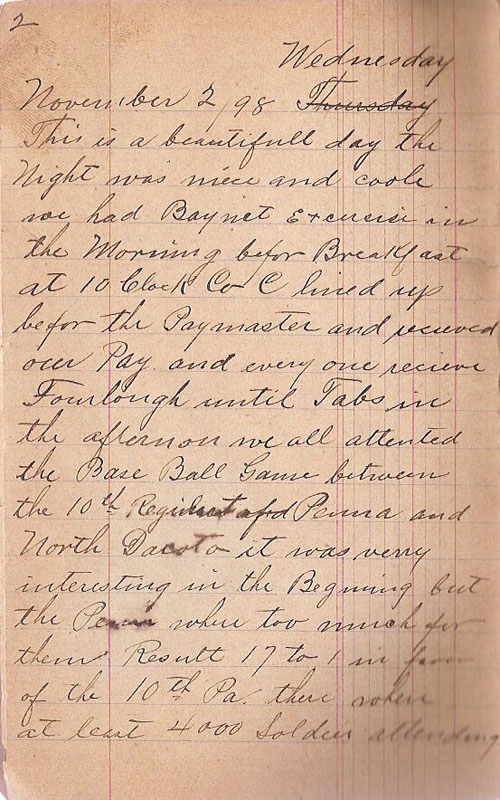 2
Wednesday
November 2, 98 Thursday
This is a beautifull day the
Night was niece and coole
we had Baynet Excersise in
the Morning befor Breakfast
at 10 Clock Co C lined up
befor the Paymaster and recieved
ouer Pay and every one recieve
Fourlough until Tabs in
the afternoon we all attented
the Base Ball Game between
the 10th Regiment of Penna and
North Dacoto it was verry
interesting in the Begining but
the Penna where too much for
them Result 17 to 1 in favor
of the 10th Pa. there where
at least 4000 Soldier attending